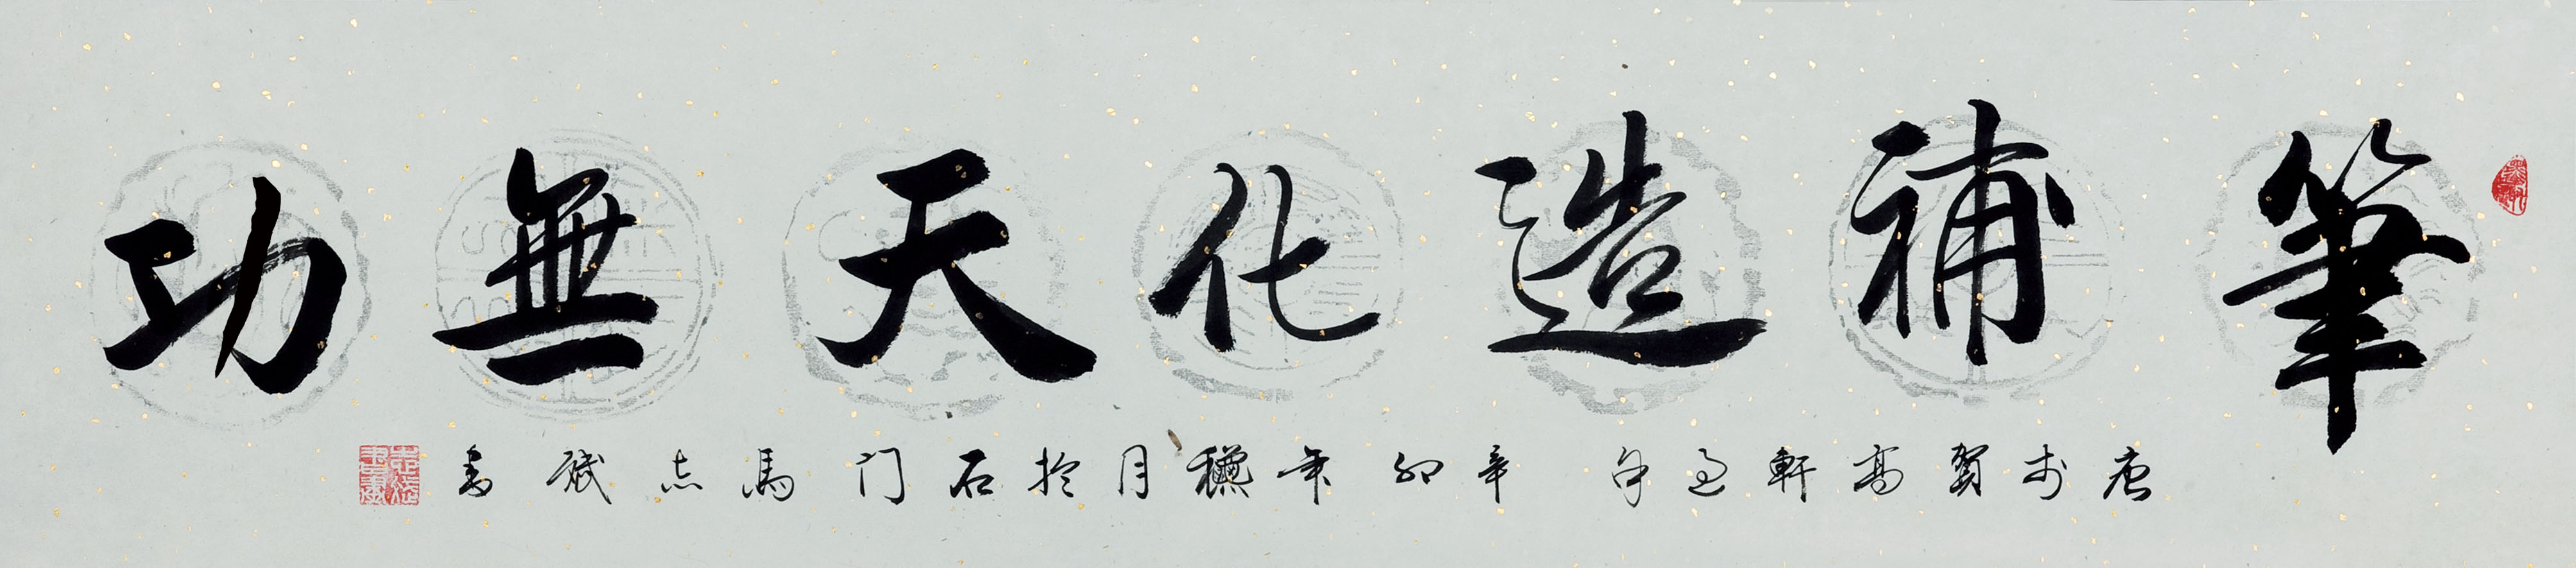 筆補造化天無功
唐李賀高軒過句 辛卯年穐月於石门馬志斌書